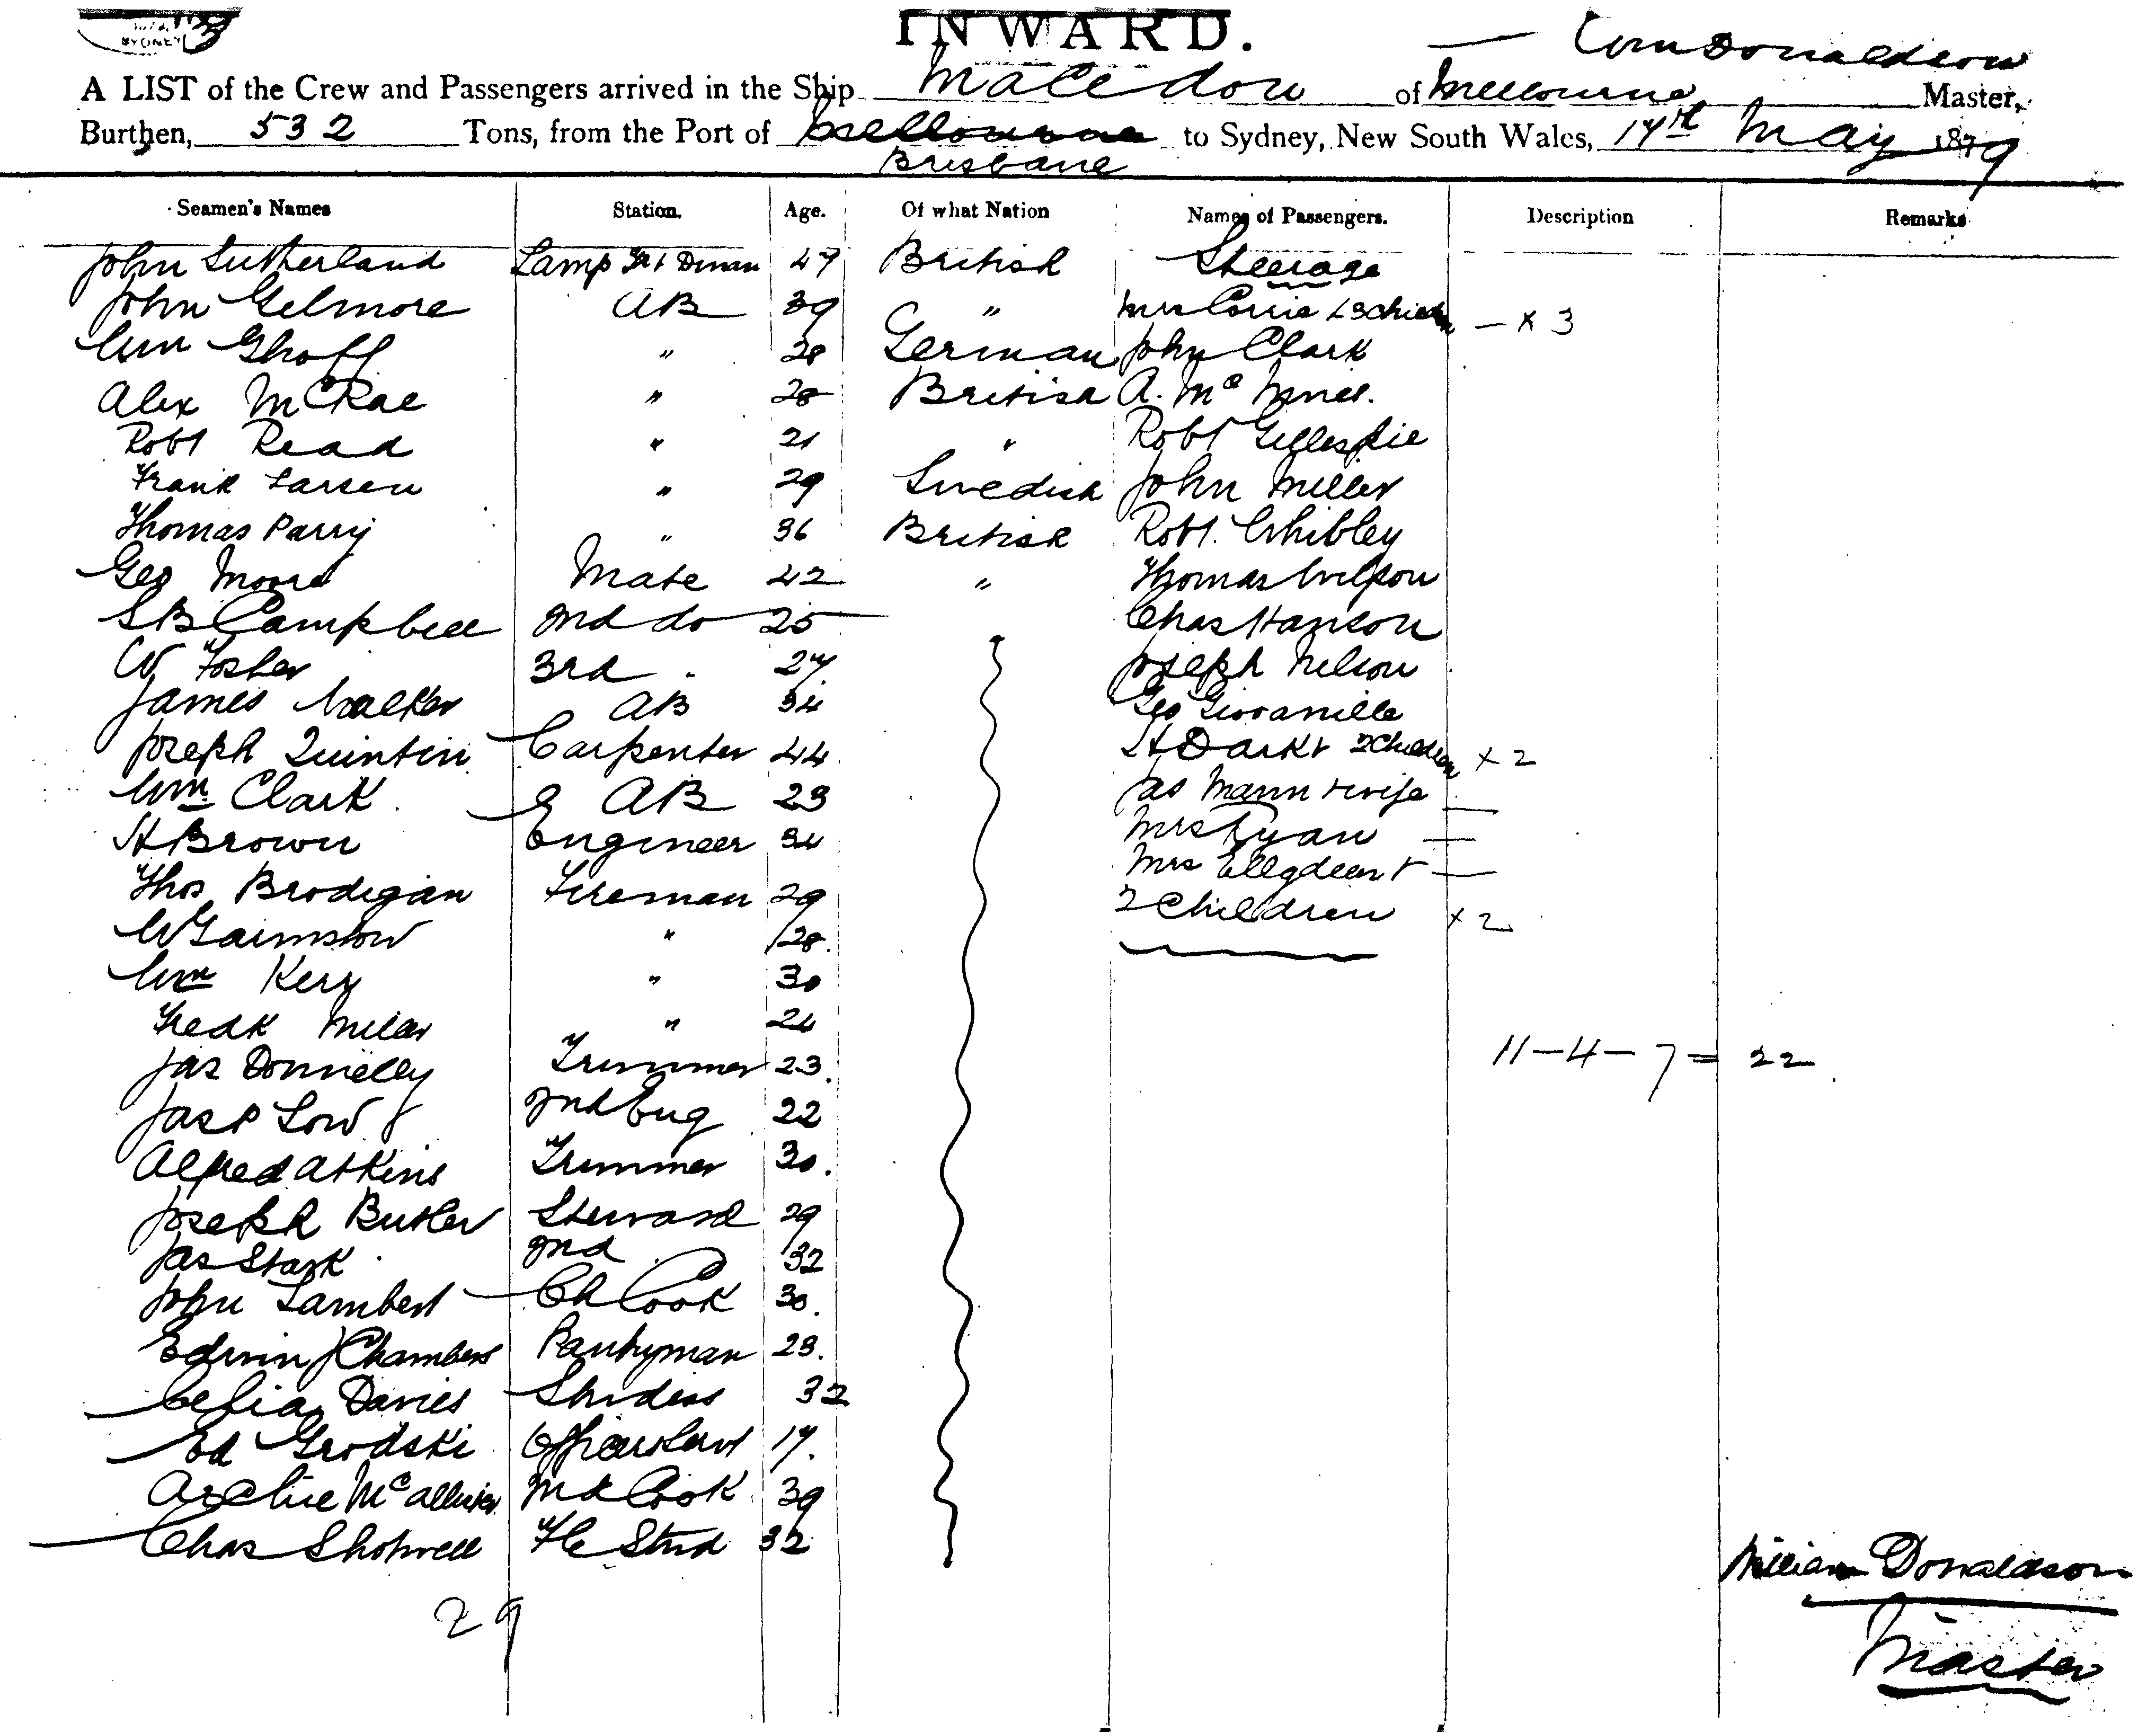 SYDNEY
INWARD.
Wm Donaldson
A LIST of the Crew and Passengers arrived in the Ship Macedon of Melbourne Master,
Burthen, 532 Tons, from the Port of Melbourne to Sydney, New South Wales, 14th May 1879
Brisbane
Seamen's Names Station. Age. Of what Nation Names of Passengers. Description Remarks
John Sutherland Lamp 47 British Steerage
John Gilmore AB 39 " Mrs 3 Children - x 3
Wm Ghoff " 28 German John Clark
Alex McRae " 28 British A. Mc
Robt Read " 21 " Robt Gillespie
Frank Larsen " 29 Swedish John Miller
Thomas Parry " 36 British Robt. Whibley
Geo Moore Mate 42 " Thomas Wilson
SB Campbell 2nd do 25 Chas Hanson
W Foster 3rd " 27 Joseph Nelson
James Walker AB 34 Geo
Joseph Quintin Carpenter 44 H Dark & 2 Children x 2
Wm Clark AB 23 Jas Mann & wife —
H Brown Engineer 34 Mrs Ryan —
Thos Brodigan Fireman 29 Mrs & —
" 28. 2 Children x 2
Wm Kerr " 30
Fredk Miller " 24
Jas Donnelly Trimmer 23. 11-4-7= 22
Jas Low 2nd Eng 22
Alfred Atkins Trimmer 30.
Joseph Butler Steward 29
Jas Stark 2nd " 32
John Lambert Ch Cook 30.
Edwin J Chambers Pantryman 23.
Celia Davies Stwdess 32
Ed Grodski Officers Servt 17.
Archie McAllister 2nd Cook 39
Chas Shotwell Fc Stwd 32
29
William Donaldson
Master